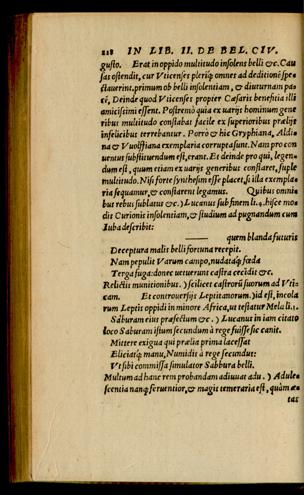 218 IN LIB. II. DE BEL. CIV.
gusto. Erat in oppido multitudo insolens belli &c. Cau
sas ostendit, cur Vticenses pleriq́ omnes ad deditionē spe
ctauerint, primum ob belli insolentiam, & diuturnam pa=
cē, Deinde quod Vticenses propter Cæsaris beneficia illi
amicissimi essent. Postremò quia ex uarijs hominum gene
ribus multitudo constabat facile ex superioribus prælijs
infelicibus terrebantur. Porrò & hic Gryphiana, Aldi=
na & Vuolffiana exemplaria corrupta sunt. Nam pro con
uentus substituendum est, erant. Et deinde pro qui, legen=
dum est, quum etiam ex uarijs generibus constaret, suple
multitudo. Nisi forte synthesim esse placet, si illa exempla=
ria sequamur, & constarent legamus. Quibus omni=
bus rebus sublatus &c.) Lucanus sub finem li. 4. hisce mo=
dis Curionis insolentiam, & studium ad pugnandum cum
Iuba describit:
quem blanda futuris
Deceptura malis belli fortuna recepit.
Nam pepulit Varum campo, nudataq́ fœda
Terga fuga: donec uetuerunt castra cecidit &c.
Relictis munitionibus.) scilicet castrorũ suorum ad Vti=
cam. Et controuersijs Leptitanorum.) id est, incola
rum Leptis oppidi in minore Africa, ut testatur Mela li. 1.
Saburam eius præfectum &c.) Lucanus in iam citato
loco Saburam ipsum secundum à rege fuisse sic canit.
Mittere exigua qui prælia prima lacessat
Eliciatq́ manu, Numidis à rege secundus:
Vt sibi commissa simulator Sabbura belli.
Multum ad hanc rem probandam adiuuat adu.) Adule=
scentia nanq́ feruentior, & magis temeraria est, quàm æ=
tas